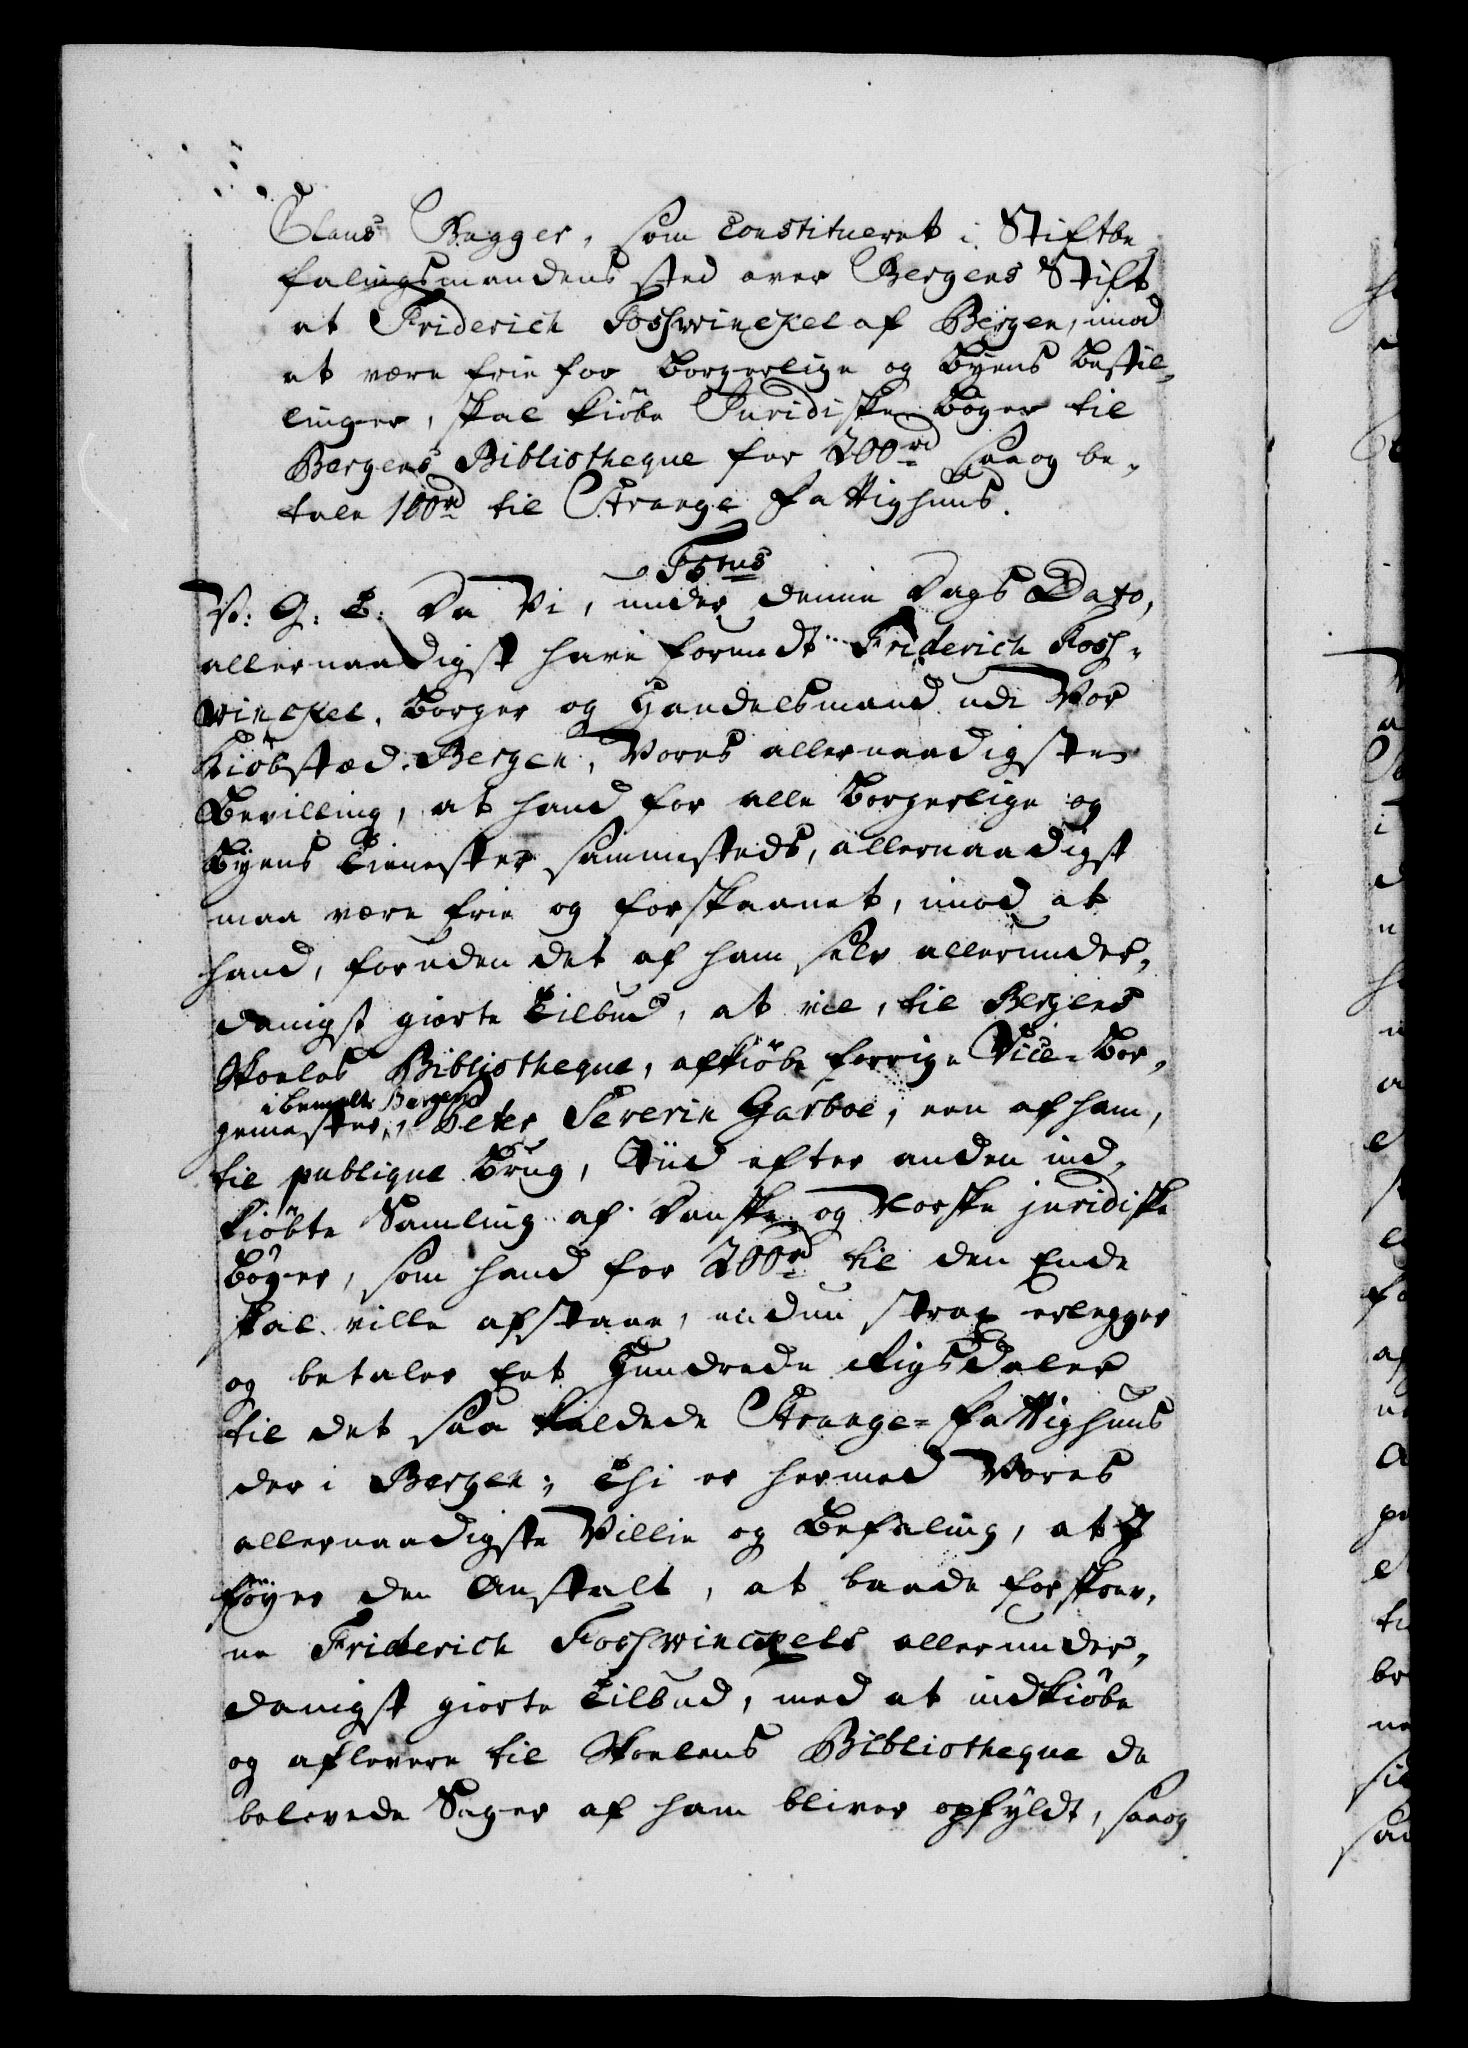 Claus Bagger, som constitueret i Stiftbe
falingsmandens sted over Bergens Stift
at Friderich Foschwinckel af Bergen, imod
at være frie for Borgerlige og Byens Bestil¬
linger, skal kiøbe Juridiske Bøger til
Bergens Bibliotheque for 200rd saa og be¬
tale 100rd til Strange Fattighuus.
Fstus
V: G: T: Da Vi, under denne Dags Dato,
allernaadigst have forundt Friderich Fosch¬
winckel, Borger og Handelsmand udi Vor
Kiøbstæd Bergen, Vores allernaadigste
Bevilling, at hand for alle Borgerlige og
Byens Tienester sammesteds, allernaadigst
maa være frie og forskaanet, imod at
hand, foruden det af ham selv allerunder¬
danigst giorte Tilbud, at vil, til Bergens
Skoeles Bibliotheque, afkiøbe forrige Vice-Bor¬
i bemelte Bergen
gemester, Peter Severin Garboe, een af ham,
til publique Brug, Tiid efter anden ind¬
kiøbte Samling af Danske og Norske juridiske
Bøger, som hand for 200rd til den Ende
skal ville afstaae, endnu strax erlegger
og betaler Eet Hundrede Rigsdaler
til det saa kaldede Strange-Fattighuus
der i Bergen; Thi er hermed Vores
allernaadigste Villie og Befaling, at I
føyer den Anstalt, at baade forskrev¬
ne Friderich Foschwinckels allerunder¬
danigst giorte Tilbud, med at indkiøbe
og aflevere til Skoelens Bibliotheque de
belovede Sager af ham bliver opfyldt, saa og